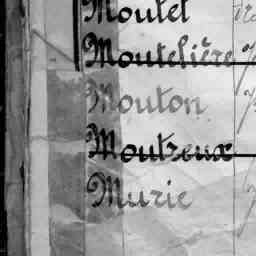 Moutet
Moutelière
Mouton
Moutreux
Murie